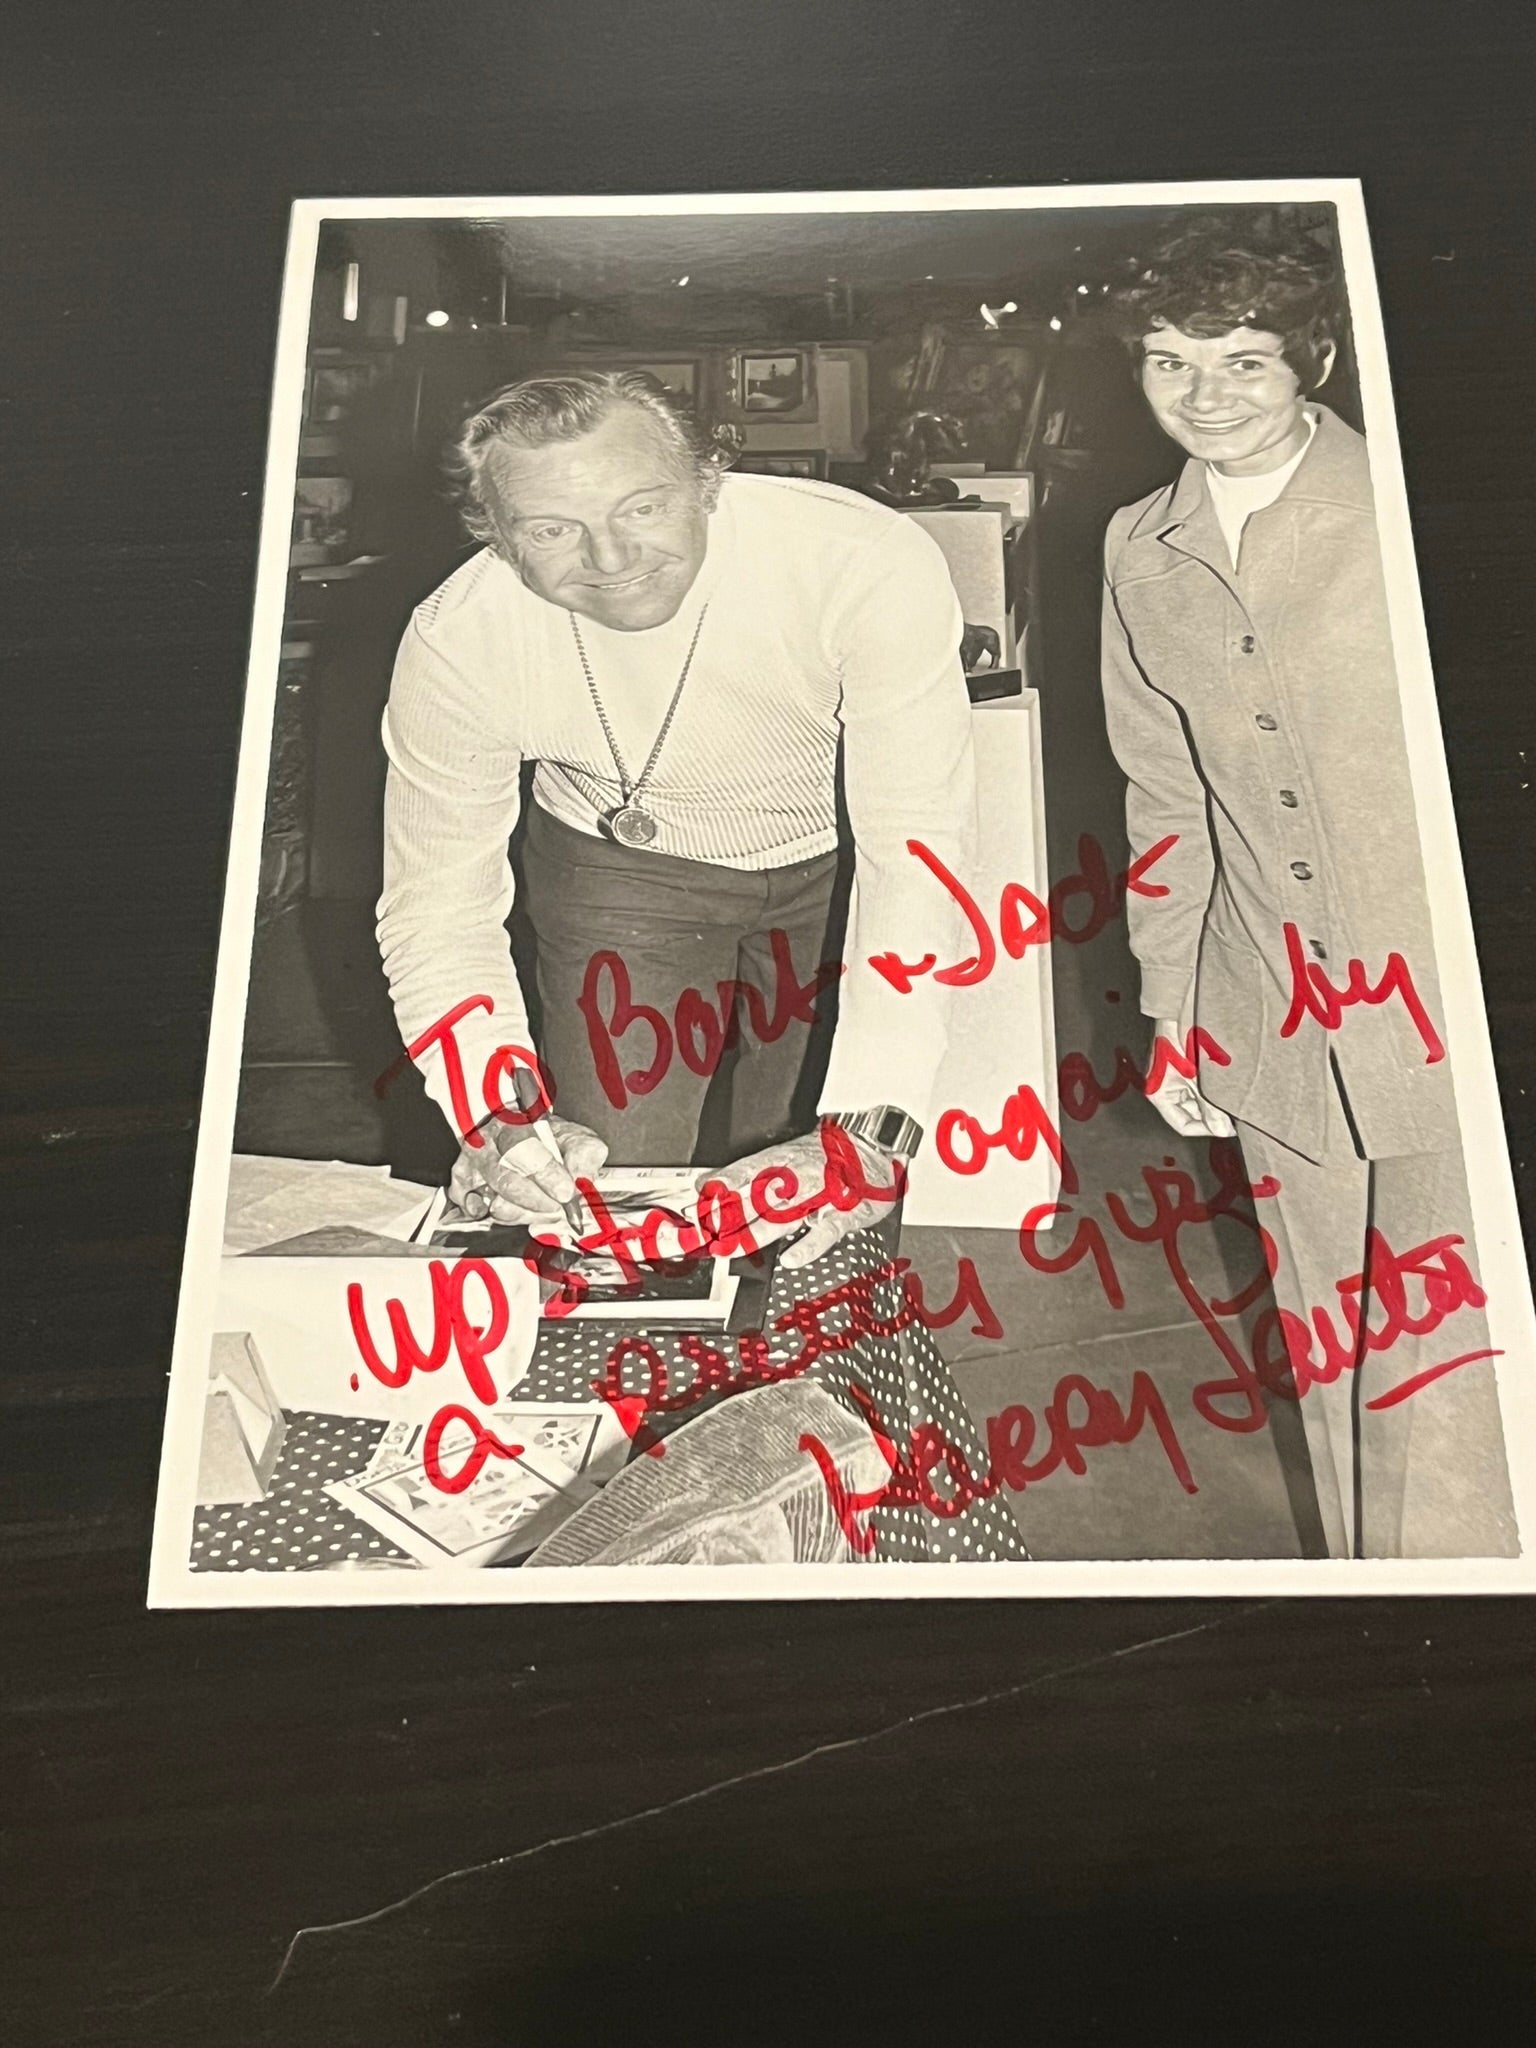 To Bart & Jack
Upstaged again by
a pretty girl
Harry